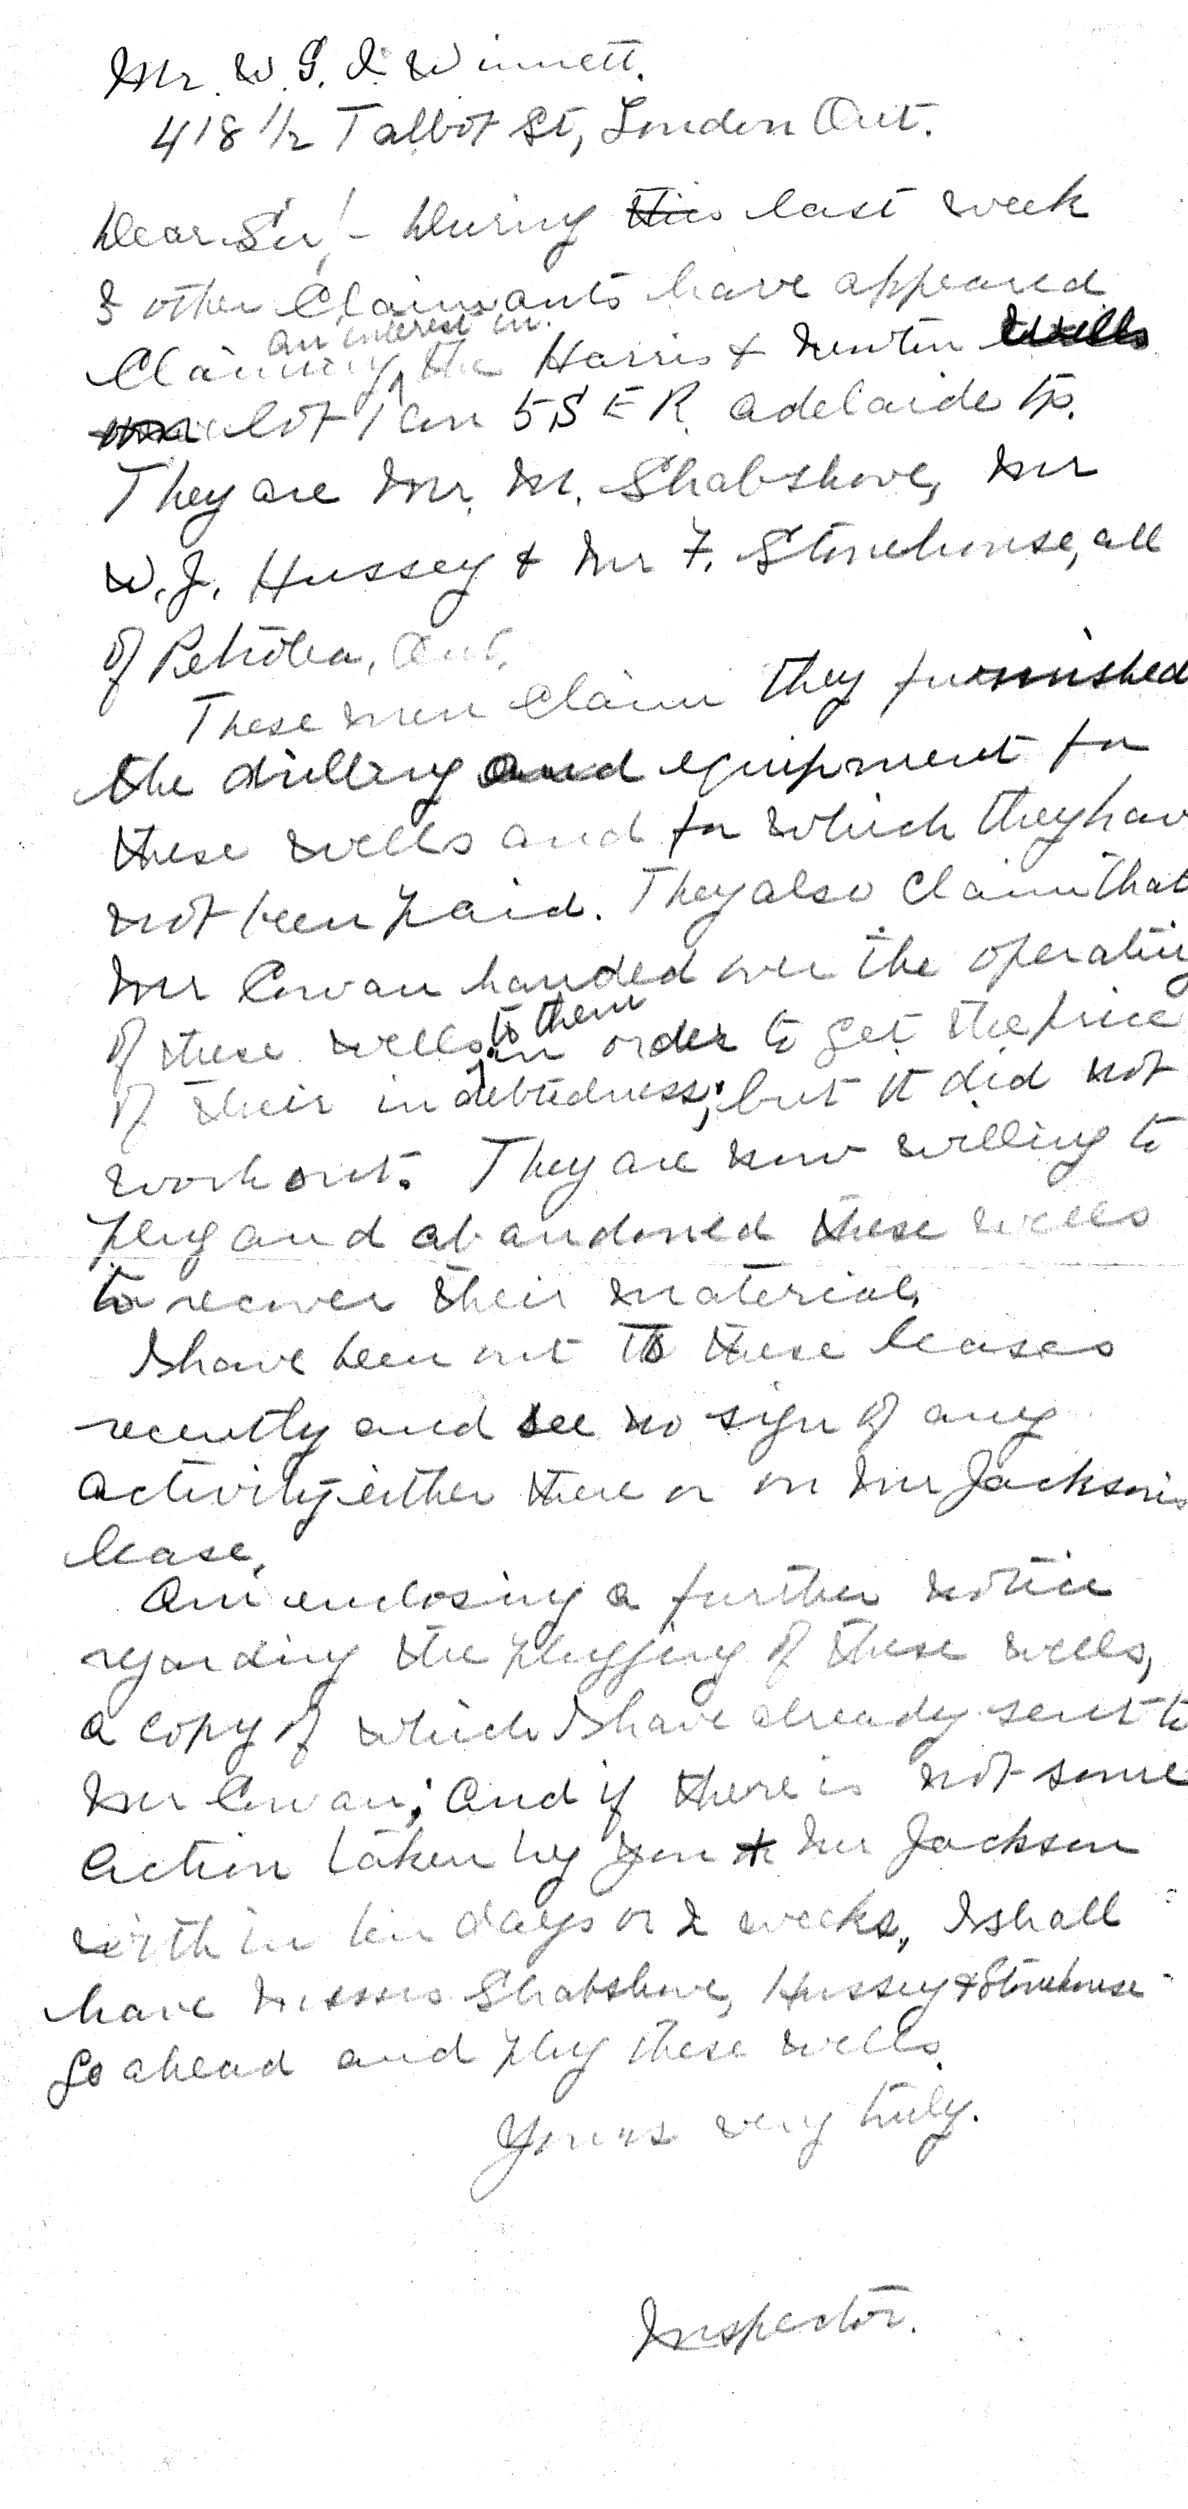 Mr. W. G. I. Winnett.
418 1/2 Talbot St, London Ont.
Dear Sir! - During this last week
3 other Claimants have appeared
an interest in
Claiming the Harris & Newton wells
lot 1 Con 5 S E R. adelaide tp.
They are Mr. M. Shabshove, Mr
W. J. Hussey & Mr F. Stonehouse, all
of Petrolea, Ont.
These men claim they furnished
the drilling and equipment for
these wells and for which they hav
not been paid. They also claim that
Mr Cowan handed over the operating
to them
of these wells in order to get the price
of their indebtedness; but it did not
work out. They are now willing to
plug and abandoned these wells
to recover their material.
I have been out to these leases
recently and see no sign of any
activity either there or on Mr Jackson's
lease.
Am enclosing a further notice
regarding the plugging of these wells,
a copy of which I have already sent to
Mr Cowan; and if there is not some
action taken by you & Mr Jackson
within ten days or 2 weeks, I shall
have Messrs Shabshove, Hussey & Stonehouse
go ahead and plug these wells.
Yours very truly.
Inspector.